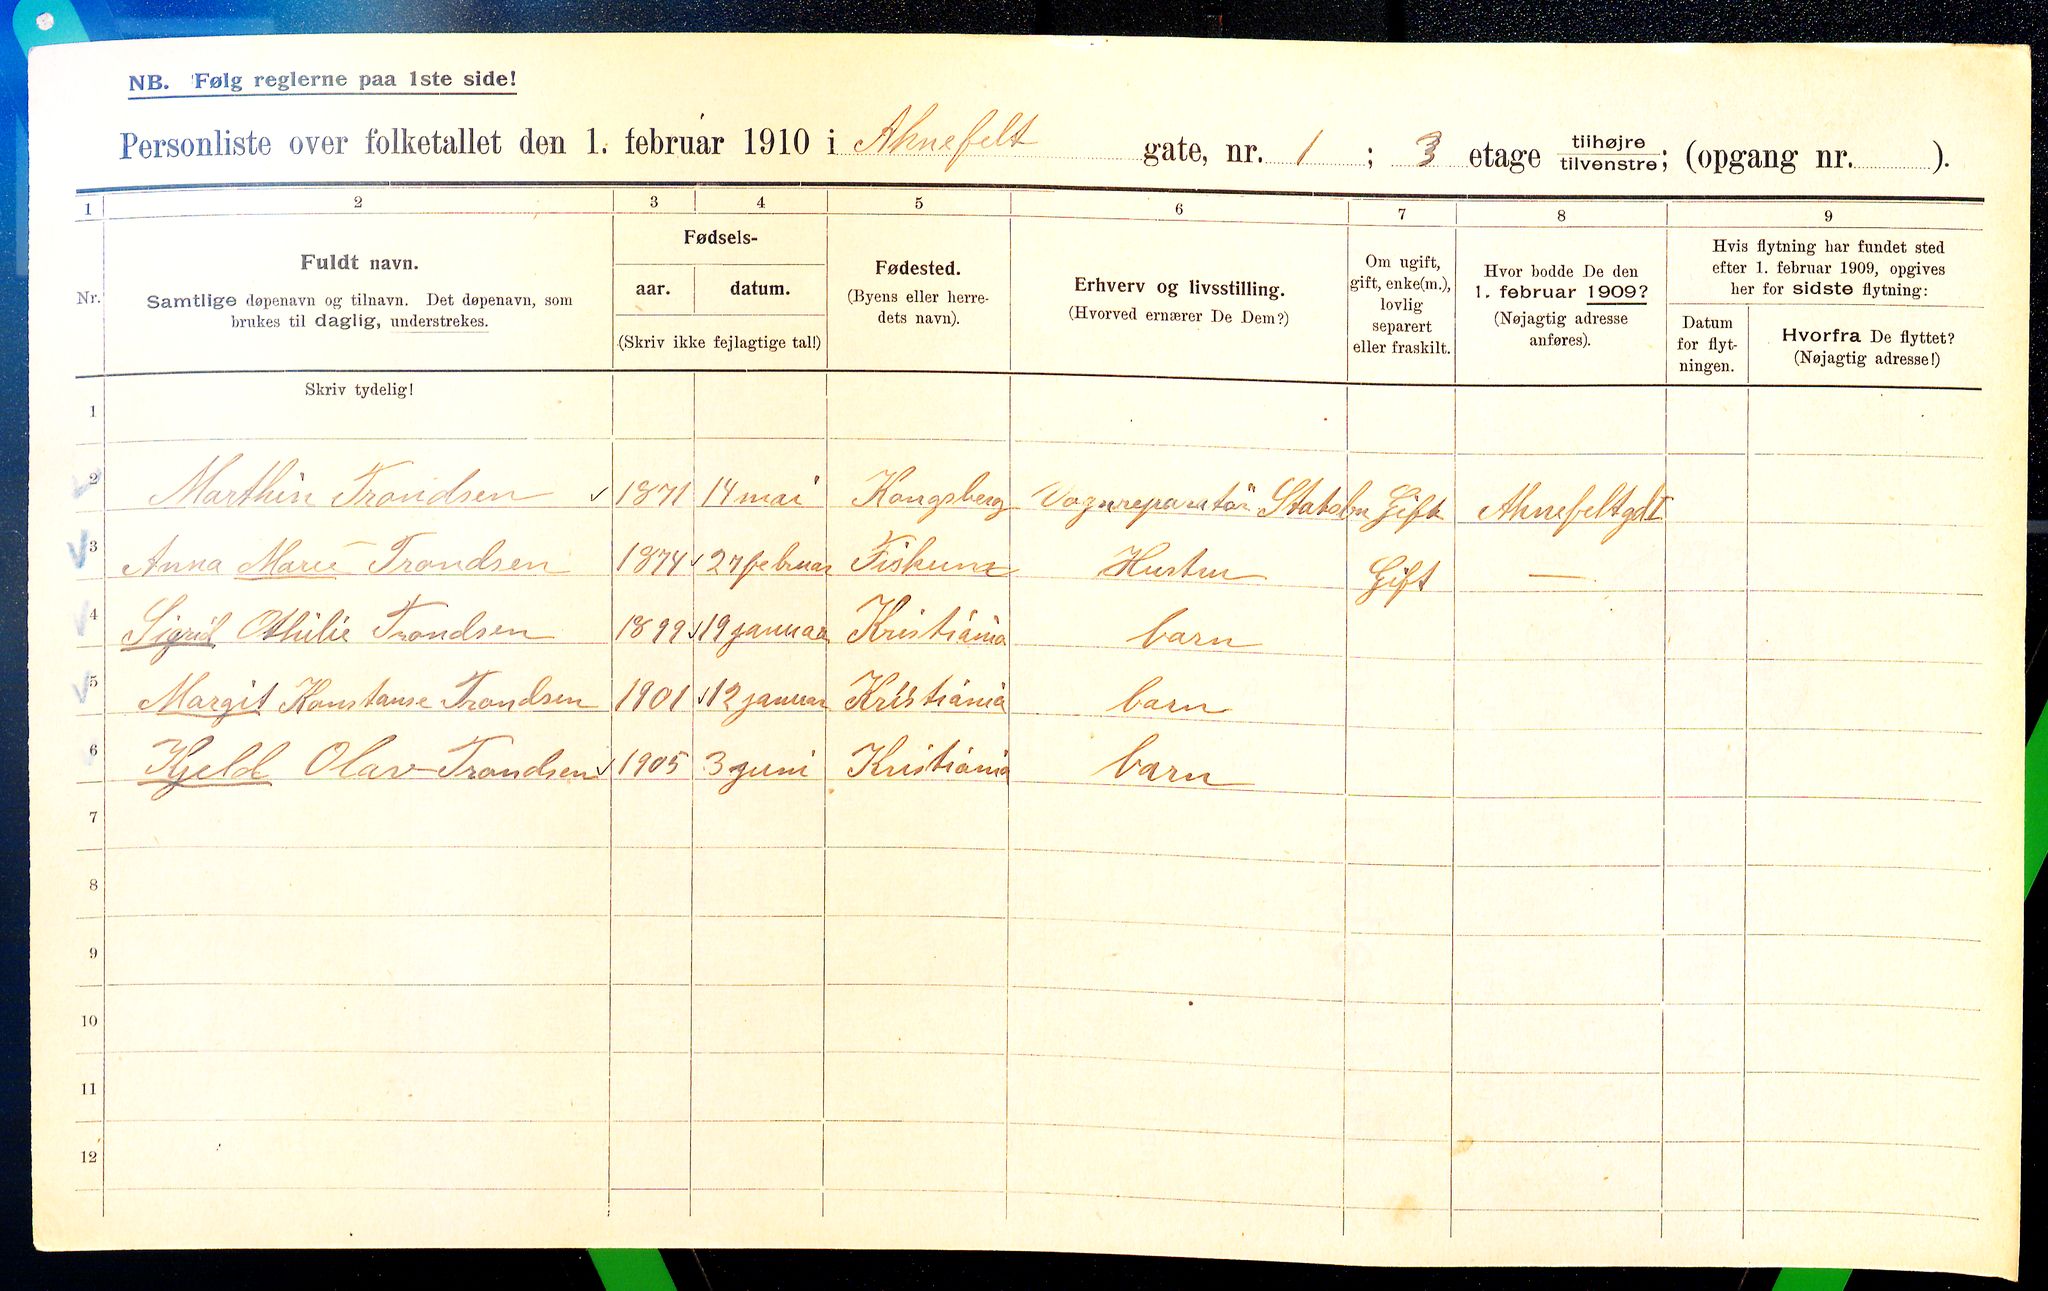 NB. Følg reglerne paa 1ste side!
Personliste over folketallet den 1. februar 1910 i Aknefelt gate, nr. 1 ; 3 etage tilhøjre tilvenstre; (opgang nr. ).
1 2 3 4 5 6 7 8 9
Nr.
Fuldt navn.
Samtlige døpenavn og tilnavn. Det døpenavn, som
brukes til daglig, understrekes.
Fødsels-
aar. datum.
(Skriv ikke fejlagtige tal!)
Fødested.
(Byens eller herre-
dets navn).
Erhverv og livsstilling.
(Hvorved ernærer De Dem?)
Om ugift,
gift, enke(m.),
lovlig
separert
eller fraskilt.
Hvor bodde De den
1. februar 1909?
(Nøjagtig adresse
anføres).
Hvis flytning har fundet sted
efter 1. februar 1909, opgives
her for sidste flytning:
Datum
for flyt-
ningen.
Hvorfra De flyttet?
(Nøjagtig adresse!)
Skriv tydelig!
1
2 Marthin Trondsen 1871 14 mai Kongsberg Vognreparatör Gift Aknefeltgd 1
3 Anna Marie Trondsen 1874 27 februar Fiskum Hustru Gift —
4 Sigrid Othilie Trondsen 1899 19 januar Kristiania barn
5 Margit Konstanse Trondsen 1901 12 januar Kristiania barn
6 Kjeld Olav Trondsen 1905 3 juni Kristiania barn
7
8
9
10
11
12